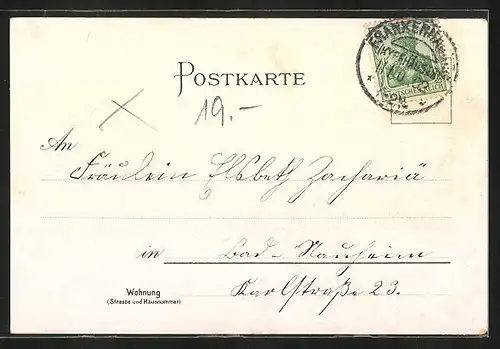 POSTKARTE
19.-
An
Fräulein Elsbeth Zachariä
in Bad-Nauheim
Wohnung
(Strasse und Hausnummer)
Karlstraße 23.